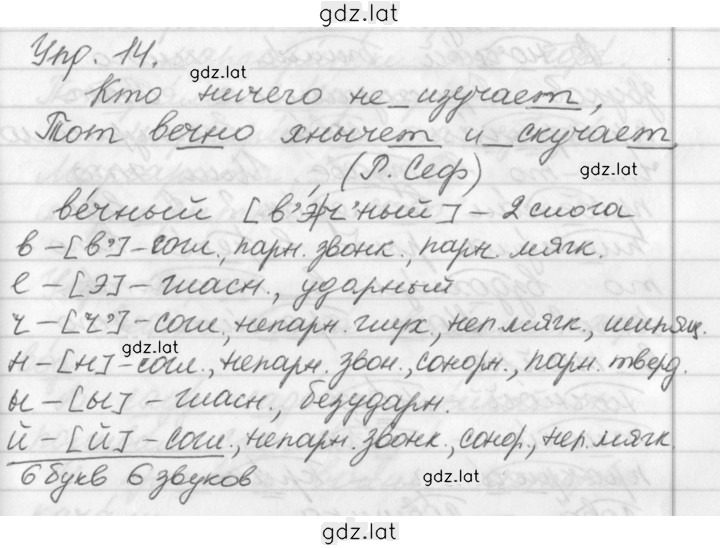 gdz.lat
Упр. 14.
gdz.lat
Кто ничего не_изучает,
Тот вечно хнычет и_скучает.
gdz.lat
(Р. Сеф)
ве́чный [в'э́/ч'ный] – 2 слога
в – [в'] – согл., парн. звонк., парн. мягк.
е – [э] – гласн., ударный
ч – [ч'] – согл., непарн. глух., неп. мягк., шипящ.
gdz.lat
н – [н] – согл., непарн. звон., сонорн., парн. тверд.
ы – [ы] – гласн., безударн.
й – [й] – согл., непарн. звонк., сонор., неп. мягк.
6 букв 6 звуков
gdz.lat
gdz.lat